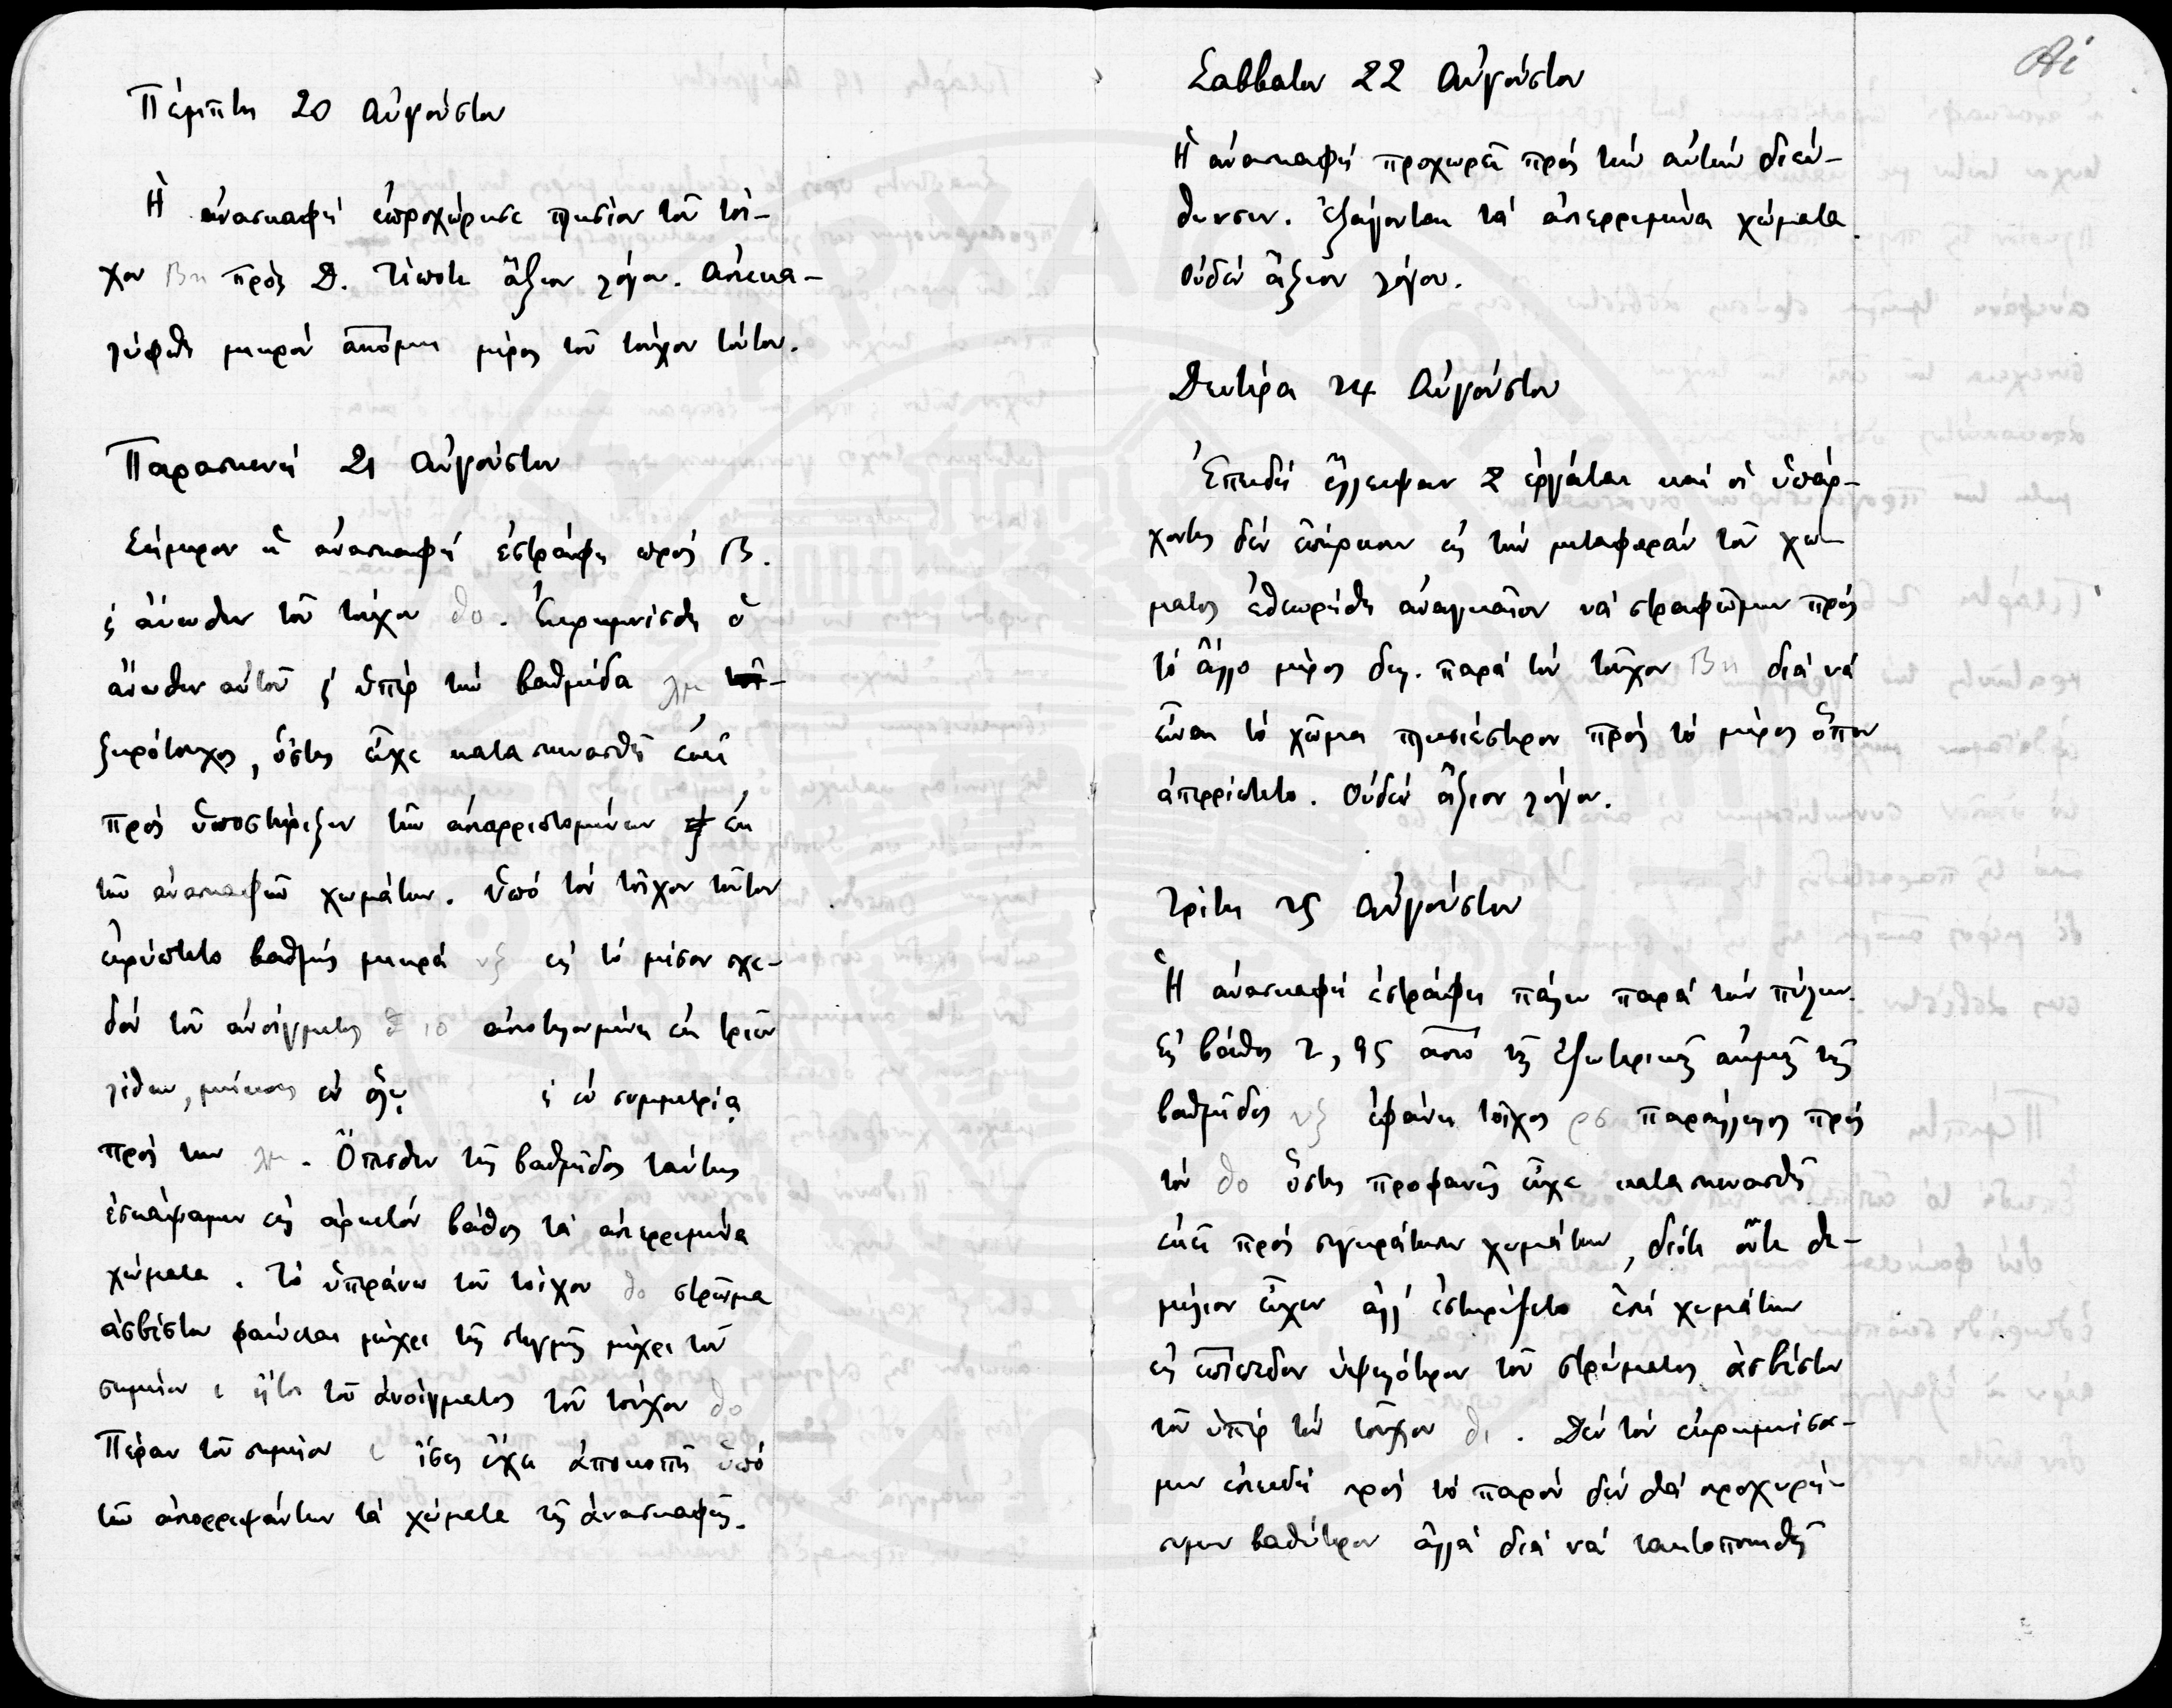 Πέμπτη 20 Αὐγούστου
Ἡ ἀνασκαφὴ ἐπροχώρησε πλησίον τοῦ τοί-
χου Βη πρὸς Δ. Τίποτε ἄξιον λόγου. Ἀπεκα-
λύφθη μικρὸν ἀκόμη μέρος τοῦ τοίχου τούτου.
Παρασκευὴ 21 Αὐγούστου
Σήμερον ἡ ἀνασκαφὴ ἐστράφη πρὸς Β.
ϛ ἄνωθεν τοῦ τοίχου θο. Ἐκρημνίσθη ὁ
ἄνωθεν αὐτοῦ ϛ ὑπὲρ τὴν βαθμίδα λμ
ξηρότοιχος, ὅστις εἶχε κατασκευασθῆ ἐκεῖ
πρὸς ὑποστήριξιν τῶν ἀπορριπτομένων ἐκ
τῶν ἀνασκαφῶν χωμάτων. Ὑπὸ τὸν τοῖχον τοῦτον
εὑρίσκετο βαθμὶς μικρὰ νξ εἰς τὸ μέσον σχε-
δὸν τοῦ ἀνοίγματος ἀποτελουμένη ἐκ τριῶν
λίθων, μήκους ἐν ὅλῳ ϛ ἐν συμμετρίᾳ
πρὸς την λμ. Ὄπισθεν τῆς βαθμῖδος ταύτης
ἐσκάψαμεν εἰς ἀρκετὸν βάθος τὰ ἀπερριμμένα
χώματα. Τὸ ὑπεράνω τοῦ τοίχου θο στρῶμα
ἀσβέστου φαίνεται μέχρι τῆς στιγμῆς μέχρι τοῦ
σημείου ι ἤτοι τοῦ ἀνοίγματος τοῦ τοίχου θο
Πέραν τοῦ σημείου ι ἴσως εἶχε ἀποκοπῆ ὑπὸ
τῶν ἀπορριψάντων τὰ χώματα τῆς ἀνασκαφῆς.
Σαββάτον 22 Αὐγούστου
Ἡ ἀνασκαφὴ προχωρεῖ πρὸς τὴν αὐτὴν διεύ-
θυνσιν. Ἐξάγονται τὰ ἀπερριμμένα χώματα.
Οὐδὲν ἄξιον λόγου.
Δευτέρα 24 Αὐγούστου
Ἐπειδὴ ἔλλειψαν 2 ἐργάται καὶ οἱ ὑπάρ-
χοντες δὲν ἐπήρκουν εἰς τὴν μεταφορὰν τοῦ χώ-
ματος ἐθεωρήθη ἀναγκαῖον νὰ στραφῶμεν πρὸς
τὸ ἄλλο μέρος δηλ. παρὰ τὸν τοῖχον Βη διὰ νὰ
εἶναι τὸ χῶμα πλησιέστερον πρὸς τὸ μέρος ὅπου
ἀπερρίπτετο. Οὐδὲν ἄξιον λόγου.
Τρίτη 25 Αὐγούστου
Ἡ ἀνασκαφὴ ἐστράφη πάλιν παρὰ τὴν πύλην.
Εἰς βάθος 2,95 ἀπὸ τῆς ἐξωτερικῆς ἀκμῆς τῆς
βαθμῖδος νξ ἐφάνη τοῖχος ρσ παράλληλος πρὸς
τὸν θο ὅστις προφανῶς εἶχε κατασκευασθῆ
ἐκεῖ πρὸς συγκράτησιν χωμάτων, διότι οὔτε θε-
μέλιον εἶχεν ἀλλ' ἐστηρίζετο ἐπὶ χωμάτων
εἰς ἐπίπεδον ὑψηλότερον τοῦ στρώματος ἀσβέστου
τοῦ ὑπὲρ τὸν τοῖχον θι. Δὲν τὸν ἐκρημνίσα-
μεν ἐπειδὴ πρὸς τὸ παρὸν δὲν θὰ προχωρή-
σωμεν βαθύτερον ἀλλὰ διὰ νὰ τακτοποιηθῆ